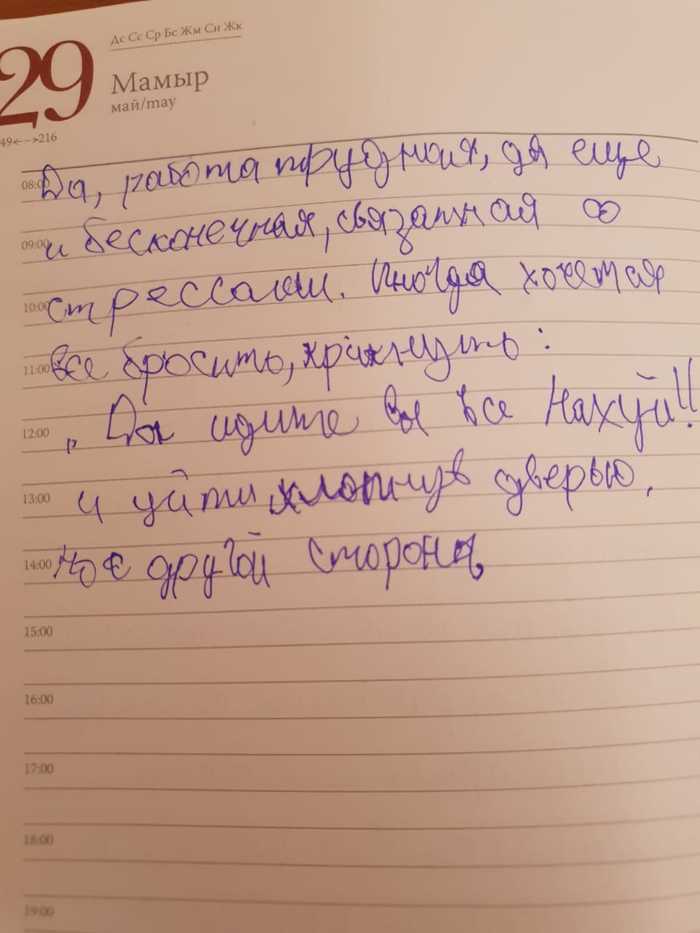 29
Дс Сс Ср Бс Жм Сн Жк
Мамыр
май/may
149←→216
08:00 Да, работа трудная, да еще
09:00 и бесконечная, связанная со
10:00 стрессами. Иногда хочется
11:00 все бросить, крикнуть:
12:00 „Да идите вы все нахуй!!
13:00 и уйти хлопнув дверью.
14:00 Но с другой стороны
15:00
16:00
17:00
18:00
19:00